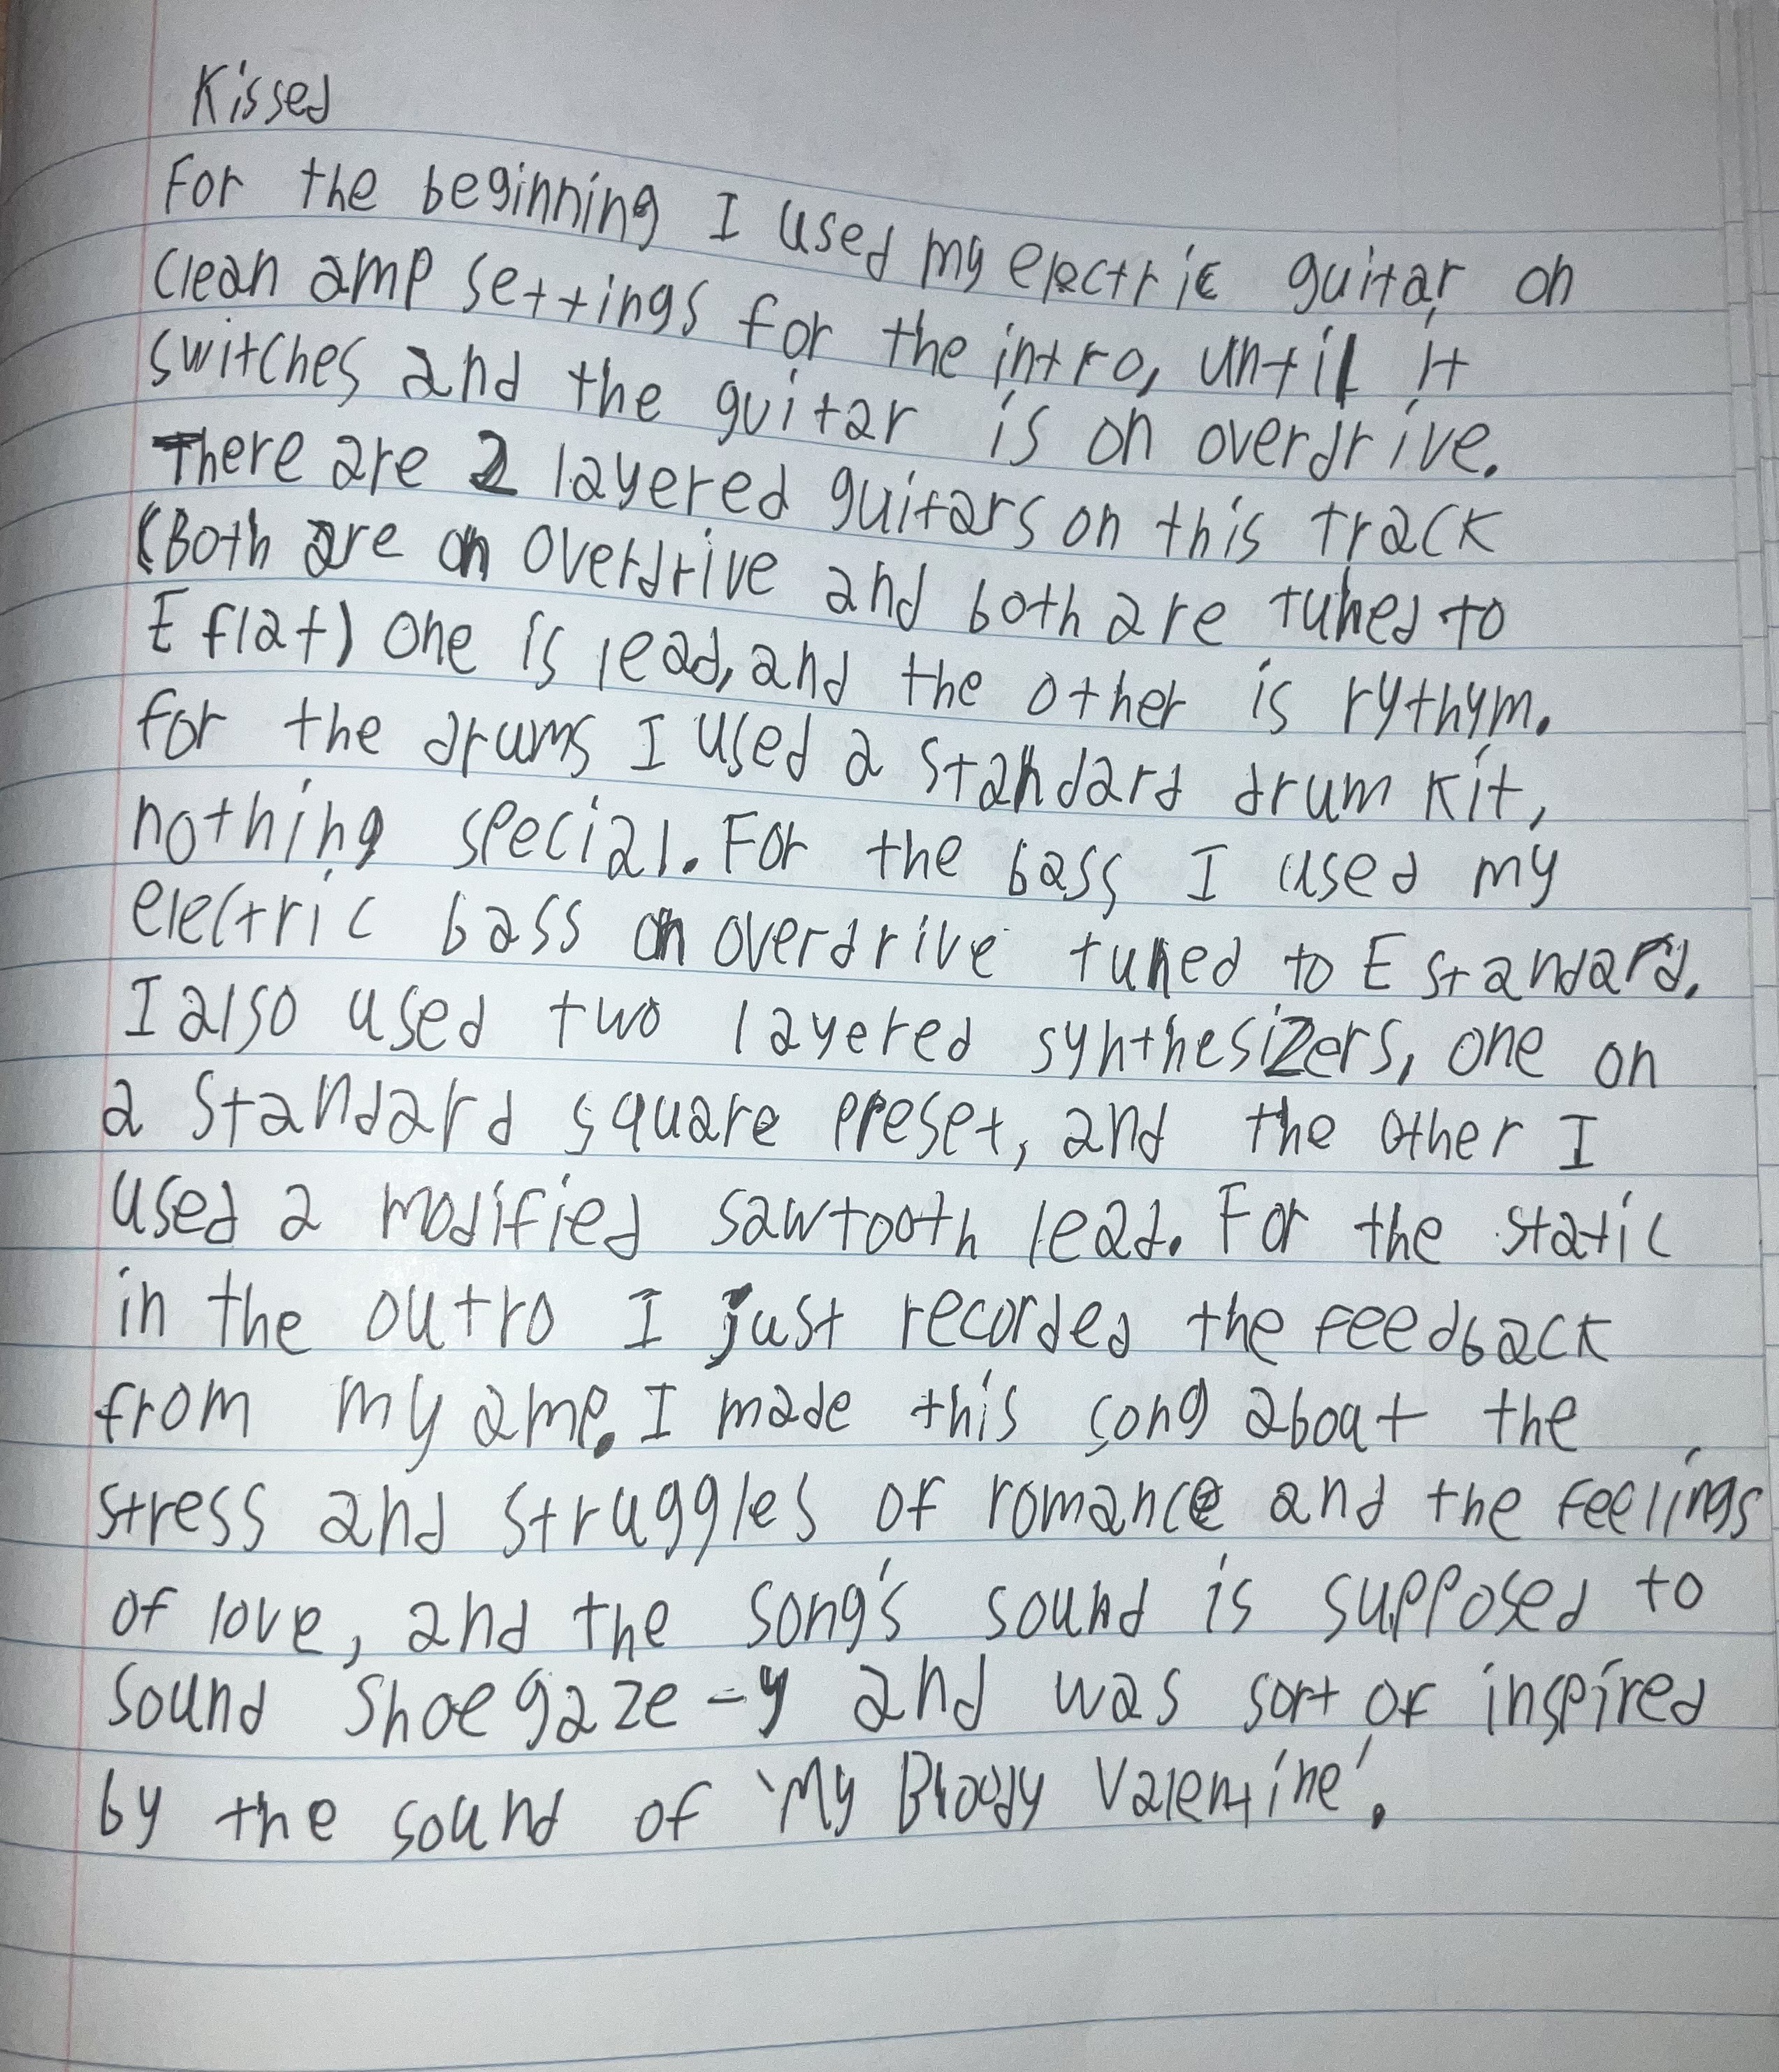 Kissed
For the beginning I used my electric guitar on
clean amp settings for the intro, until it
switches and the guitar is on overdrive.
There are 2 layered guitars on this track
(Both are on overdrive and both are tuned to
E flat) one is lead, and the other is rythym.
for the drums I used a standard drum kit,
nothing special. For the bass I used my
electric bass on overdrive tuned to E standard.
I also used two layered synthesizers, one on
a standard square preset, and the other I
used a modified sawtooth lead. For the static
in the outro I just recorded the feedback
from my amp. I made this song about the
stress and struggles of romance and the feelings
of love, and the song's sound is supposed to
sound shoegaze-y and was sort of inspired
by the sound of 'My Bloody Valentine'.